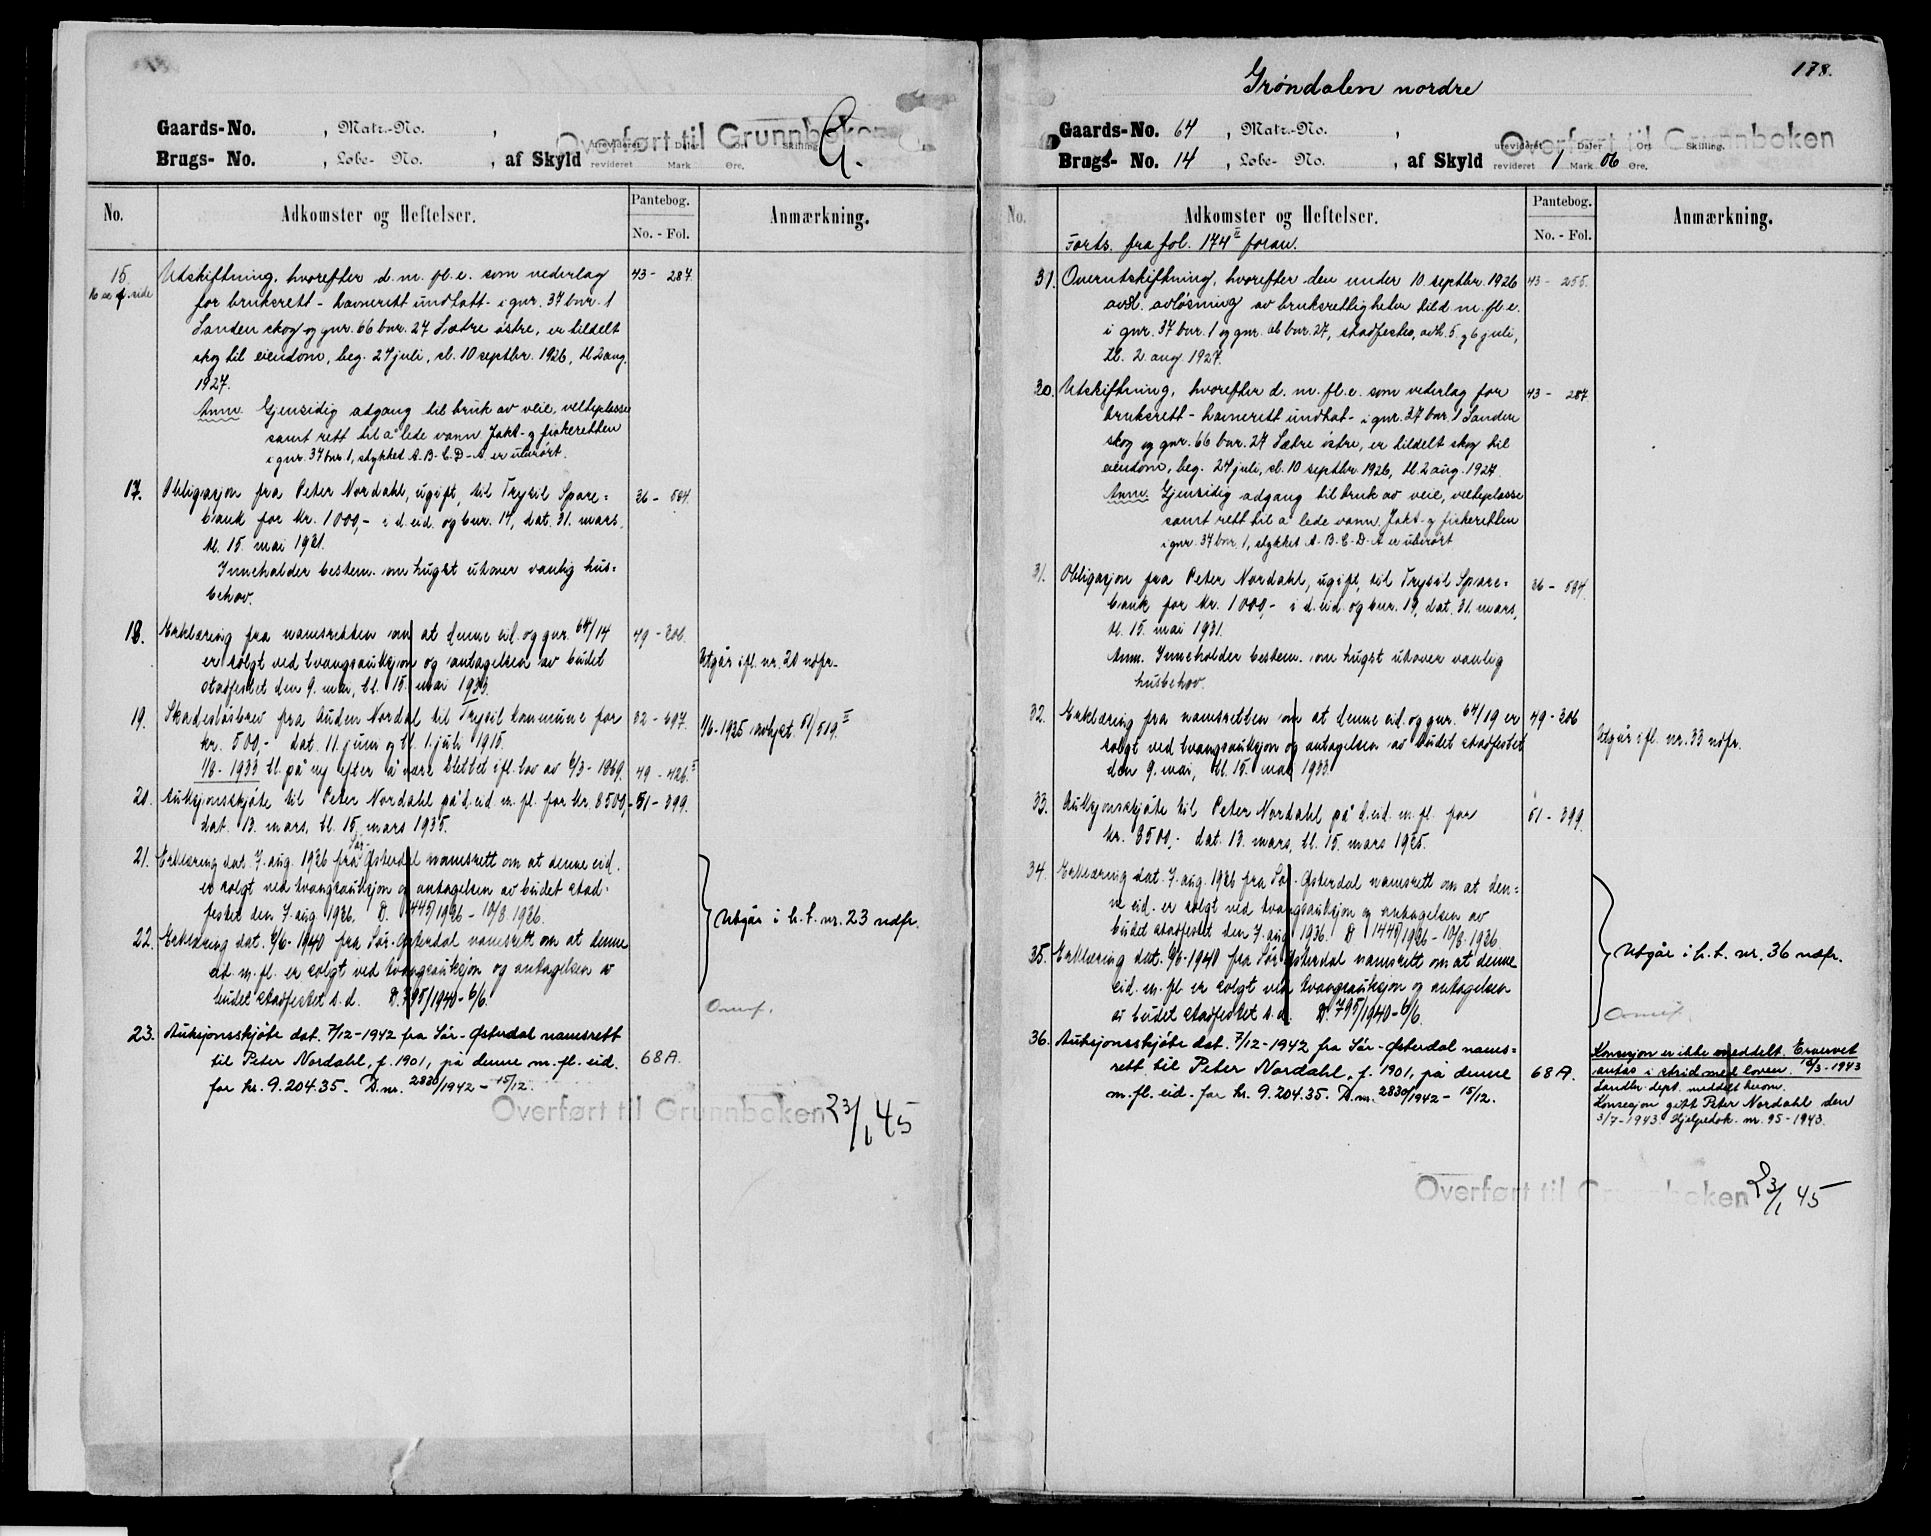 Gaards-No. , Matr.-No. ,
Brugs- No. , Løbe- No. , af Skyld urevideret Daler Ort Skilling. revideret Mark Øre.
Overført til Grunnboken
G.
No. Adkomster og Heftelser. Pantebog. No. - Fol. Anmærkning.
15. Utskiftning, hvorefter d. m. fl. e. som vederlag 43 - 287.
for bruksrett - havnerett undtatt - i gnr. 37 bnr. 1
Sanden skog og gnr. 66 bnr. 27 Sætre østre, er tildelt
skog til eiendom, beg. 27 juli, sl. 10 septbr. 1926, tl. 2 aug.
1927.
Anm. Gjensidig adgang til bruk av veie, velteplasse
samt rett til å lede vann. Jakt- og fiskeretten
i gnr. 37 bnr. 1, stykket A-B-C-D-A er uberørt.
17. Obligasjon fra Peter Nordahl, ugift, til Trysil Spare= 36 - 564.
bank for kr. 1000,- i d. eid. og bnr. 14, dat. 31. mars,
tl. 15. mai 1931.
Inneholder bestem. om hugst utover vanlig hus=
behov.
18. Erklæring fra namsretten om at denne eid. og gnr. 64/14 49 - 306.
er solgt ved tvangsauksjon og antagelsen av budet Utgår ifl. nr. 20 nedfr.
stadfestet den 9. mai, tl. 15. mai 1933.
19. Skadesløsbrev fra Auden Nordal til Trysil kommune for 32 - 697. 1/6-1935 avlyst 51/519 II
kr. 500,- dat. 11. juni og tl. 1. juli 1915.
1/8 - 1933 tl. på ny efter å være slettet ifl. lov av 6/3 - 1869. 49 - 426 II
20. Auksjonsskjøte til Peter Nordahl på d. eid. m. fl. for kr. 8500,- 51 - 399.
dat. 13. mars, tl. 15. mars 1935.
21. Erklæring dat. 7. aug. 1936 fra Sør-Østerdal namsrett om at denne eid.
er solgt ved tvangsauksjon og antagelsen av budet stad-
festet den 7. aug. 1936. D. 1445/1936 - 10/8. 1936. Utgår i h. t. nr. 23 nedfr.
22. Erklæring dat. 6/6 - 1940 fra Sør-Østerdal namsrett om at denne
eid. m. fl. er solgt ved tvangsauksjon og antagelsen av
budet stadfestet s. d. D. 795/1940 - 6/6.
23. Auksjonsskjøte dat. 7/12 - 1942 fra Sør-Østerdal namsrett
til Peter Nordahl, f. 1901, på denne m. fl. eid. 68A.
for kr. 9.204.35. D.nr. 2830/1942 - 15/12.
Overført til Grunnboken 23/1 45
178.
Grøndalen nordre
Gaards-No. 64 , Matr.-No. ,
Brugs- No. 14 , Løbe- No. , af Skyld urevideret Daler Ort Skilling. revideret 1 Mark 06 Øre.
Overført til Grunnboken
No. Adkomster og Heftelser. Pantebog. No. - Fol. Anmærkning.
Forts. fra fol. 174 II foran.
31. Overutskiftning, hvorefter den under 10. septbr. 1926 43 - 255.
avsl. avløsning av bruksrettigheter tild. m. fl. e.
i gnr. 37 bnr. 1 og gnr. 66 bnr. 27, stadfestes, avh. 5. og 6 juli,
tl. 2. aug 1927.
30. Utskiftning, hvorefter d. m. fl. e. som vederlag for 43 - 287.
bruksrett - havnerett undtat - i gnr. 37 bnr. 1 Sanden
skog og gnr. 66 bnr. 27 Sætre østre, er tildelt skog til
eiendom, beg. 27 juli, sl. 10 septbr. 1926, tl. 2 aug. 1927
Anm. Gjensidig adgang til bruk av veie, velteplasse
samt rett til å lede vann. Jakt- og fiskeretten
i gnr. 37 bnr. 1, stykket A-B-C-D-A er uberørt
31. Obligasjon fra Peter Nordahl, ugift, til Trysil Spare= 36 - 564.
bank for kr. 1000,- i d. eid. og bnr. 19, dat. 31. mars,
tl. 15. mai 1931.
Anm. Inneholder bestem. om hugst utover vanlig
husbehov.
32. Erklæring fra namsretten om at denne eid. og gnr. 64/19 er 49 - 306
solgt ved tvangsauksjon og antagelsen av budet stadfestet Utgår ifl. nr. 33 nedfr.
den 9. mai, tl. 15. mai 1933.
33. Auksjonsskjøte til Peter Nordahl på d. eid. m. fl. for 51 - 399.
kr. 8500,- dat. 13. mars, tl. 15. mars 1935.
34. Erklæring dat. 7. aug. 1936 fra Sør-Østerdal namsrett om at den=
ne eid. er solgt ved tvangsauksjon og antagelsen av
budet stadfestet den 7. aug. 1936. D. 1445/1936 - 10/8. 1936.
35. Erklæring dat. 6/6 - 1940 fra Sør-Østerdal namsrett om at denne Utgår i h. t. nr. 36 nedfr.
eid. m. fl. er solgt ved tvangsauksjon og antagelsen
av budet stadfestet s. d. D. 795/1940 - 6/6.
36. Auksjonsskjøte dat. 7/12 - 1942 fra Sør-Østerdal nams=
rett til Peter Nordahl, f. 1901, på denne 68A.
m. fl. eid. for kr. 9.204.35. D.nr. 2830/1942 - 15/12.
Konsesjon er ikke meddelt. Ervervet
antas i strid med loven. 16/3 - 1943
Landbr. dept. meddelt herom.
Konsesjon gitt Peter Nordahl den
3/7 - 1943. Hjelpedok. nr. 95 - 1943.
Overført til Grunnboken 23/1 45